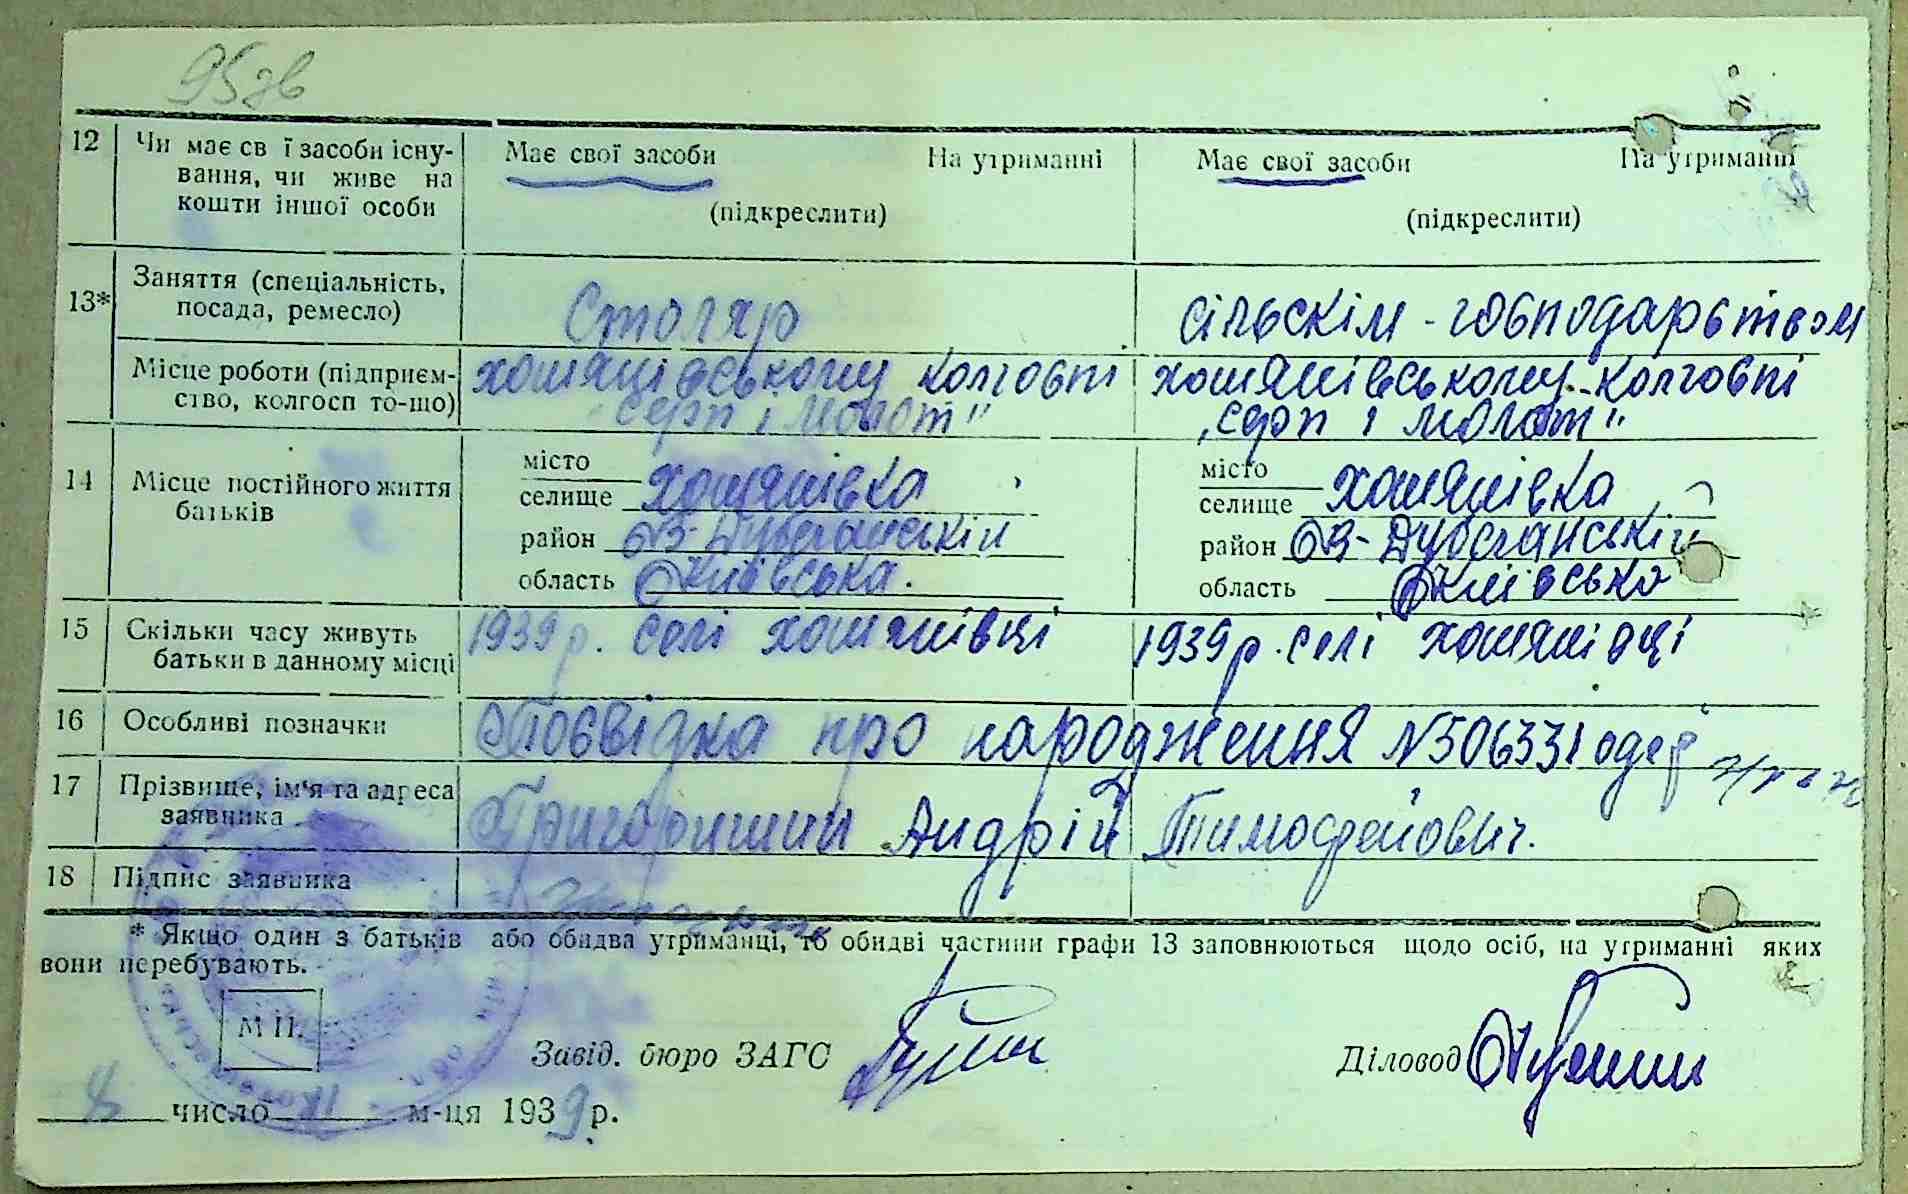 95зв
12 Чи має св ї засоби існу- Має свої засоби На утриманні Має свої засоби На утриманні
вання, чи живе на
кошти іншої особи (підкреслити) (підкреслити)
13* Заняття (спеціальність,
посада, ремесло) Столяр сільскім - господарством
Місце роботи (підприєм- колговпі колговпі
ство, колгосп то-що) „серп і молот" „серп і молот"
14 Місце постійного життя місто місто
батьків селище Хотянівка селище Хотянівка
район В-Дубечанський район В-Дубечанський
область Київська. область Київська
15 Скільки часу живуть 1939 р. селі Хотянівці 1939 р. селі
батьки в данному місці
16 Особливі позначки Посвідка про народження N506331 одер
17 Прізвище, ім'я та адреса
заявника Григоришин Андрій Тимофейович.
18 Підпис заявника
* Якщо один з батьків або обидва утриманці, то обидві частини графи 13 заповнюються щодо осіб, на утриманні яких
вони перебувають.
М П.
Завід. бюро ЗАГС Діловод
8 число м-ця 1939 р.